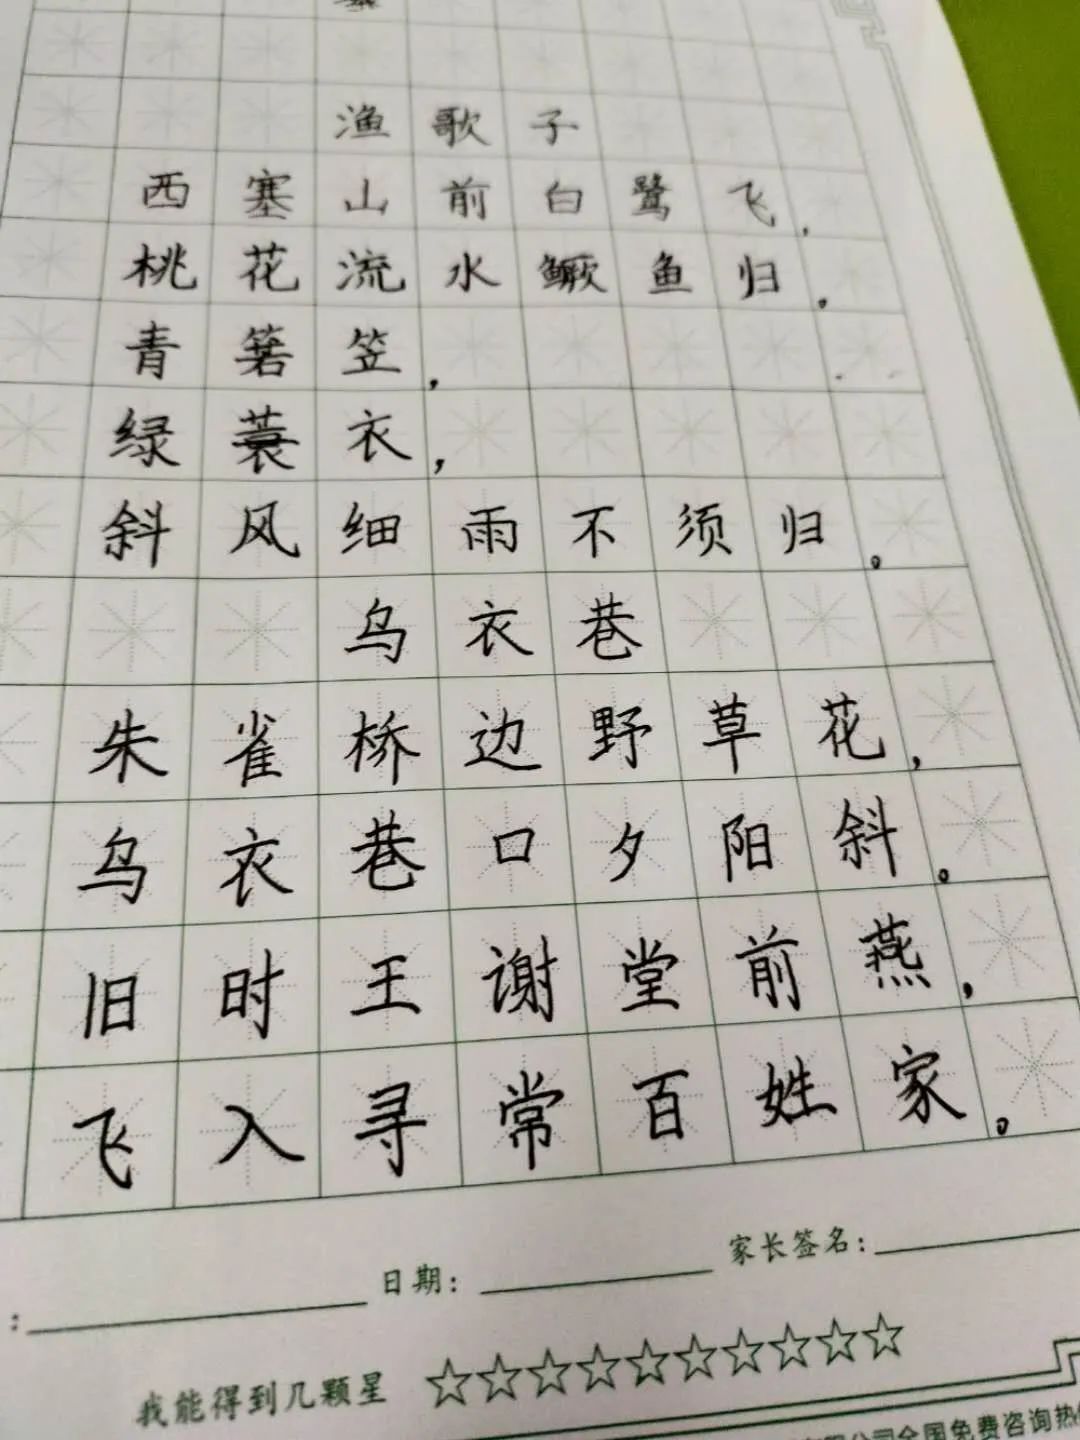 渔歌子
西塞山前白鹭飞，
桃花流水鳜鱼归。
青箬笠，
绿蓑衣，
斜风细雨不须归。
乌衣巷
朱雀桥边野草花，
乌衣巷口夕阳斜。
旧时王谢堂前燕，
飞入寻常百姓家。
家长签名：
日期：
：
我能得到几颗星 ☆☆☆☆☆☆☆☆☆☆
公司全国免费咨询热